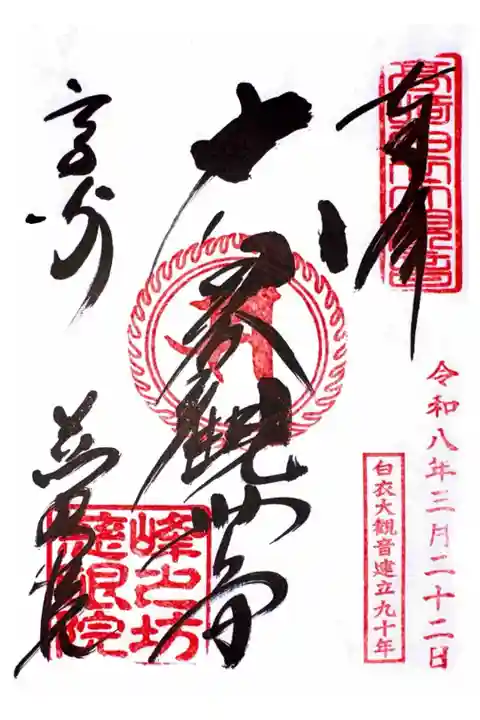 奉拝
高崎白衣大観音
令和八年三月二十二日
白衣大観音建立九十年
白衣観世音
高崎
慈眼院
峰之坊
慈眼院